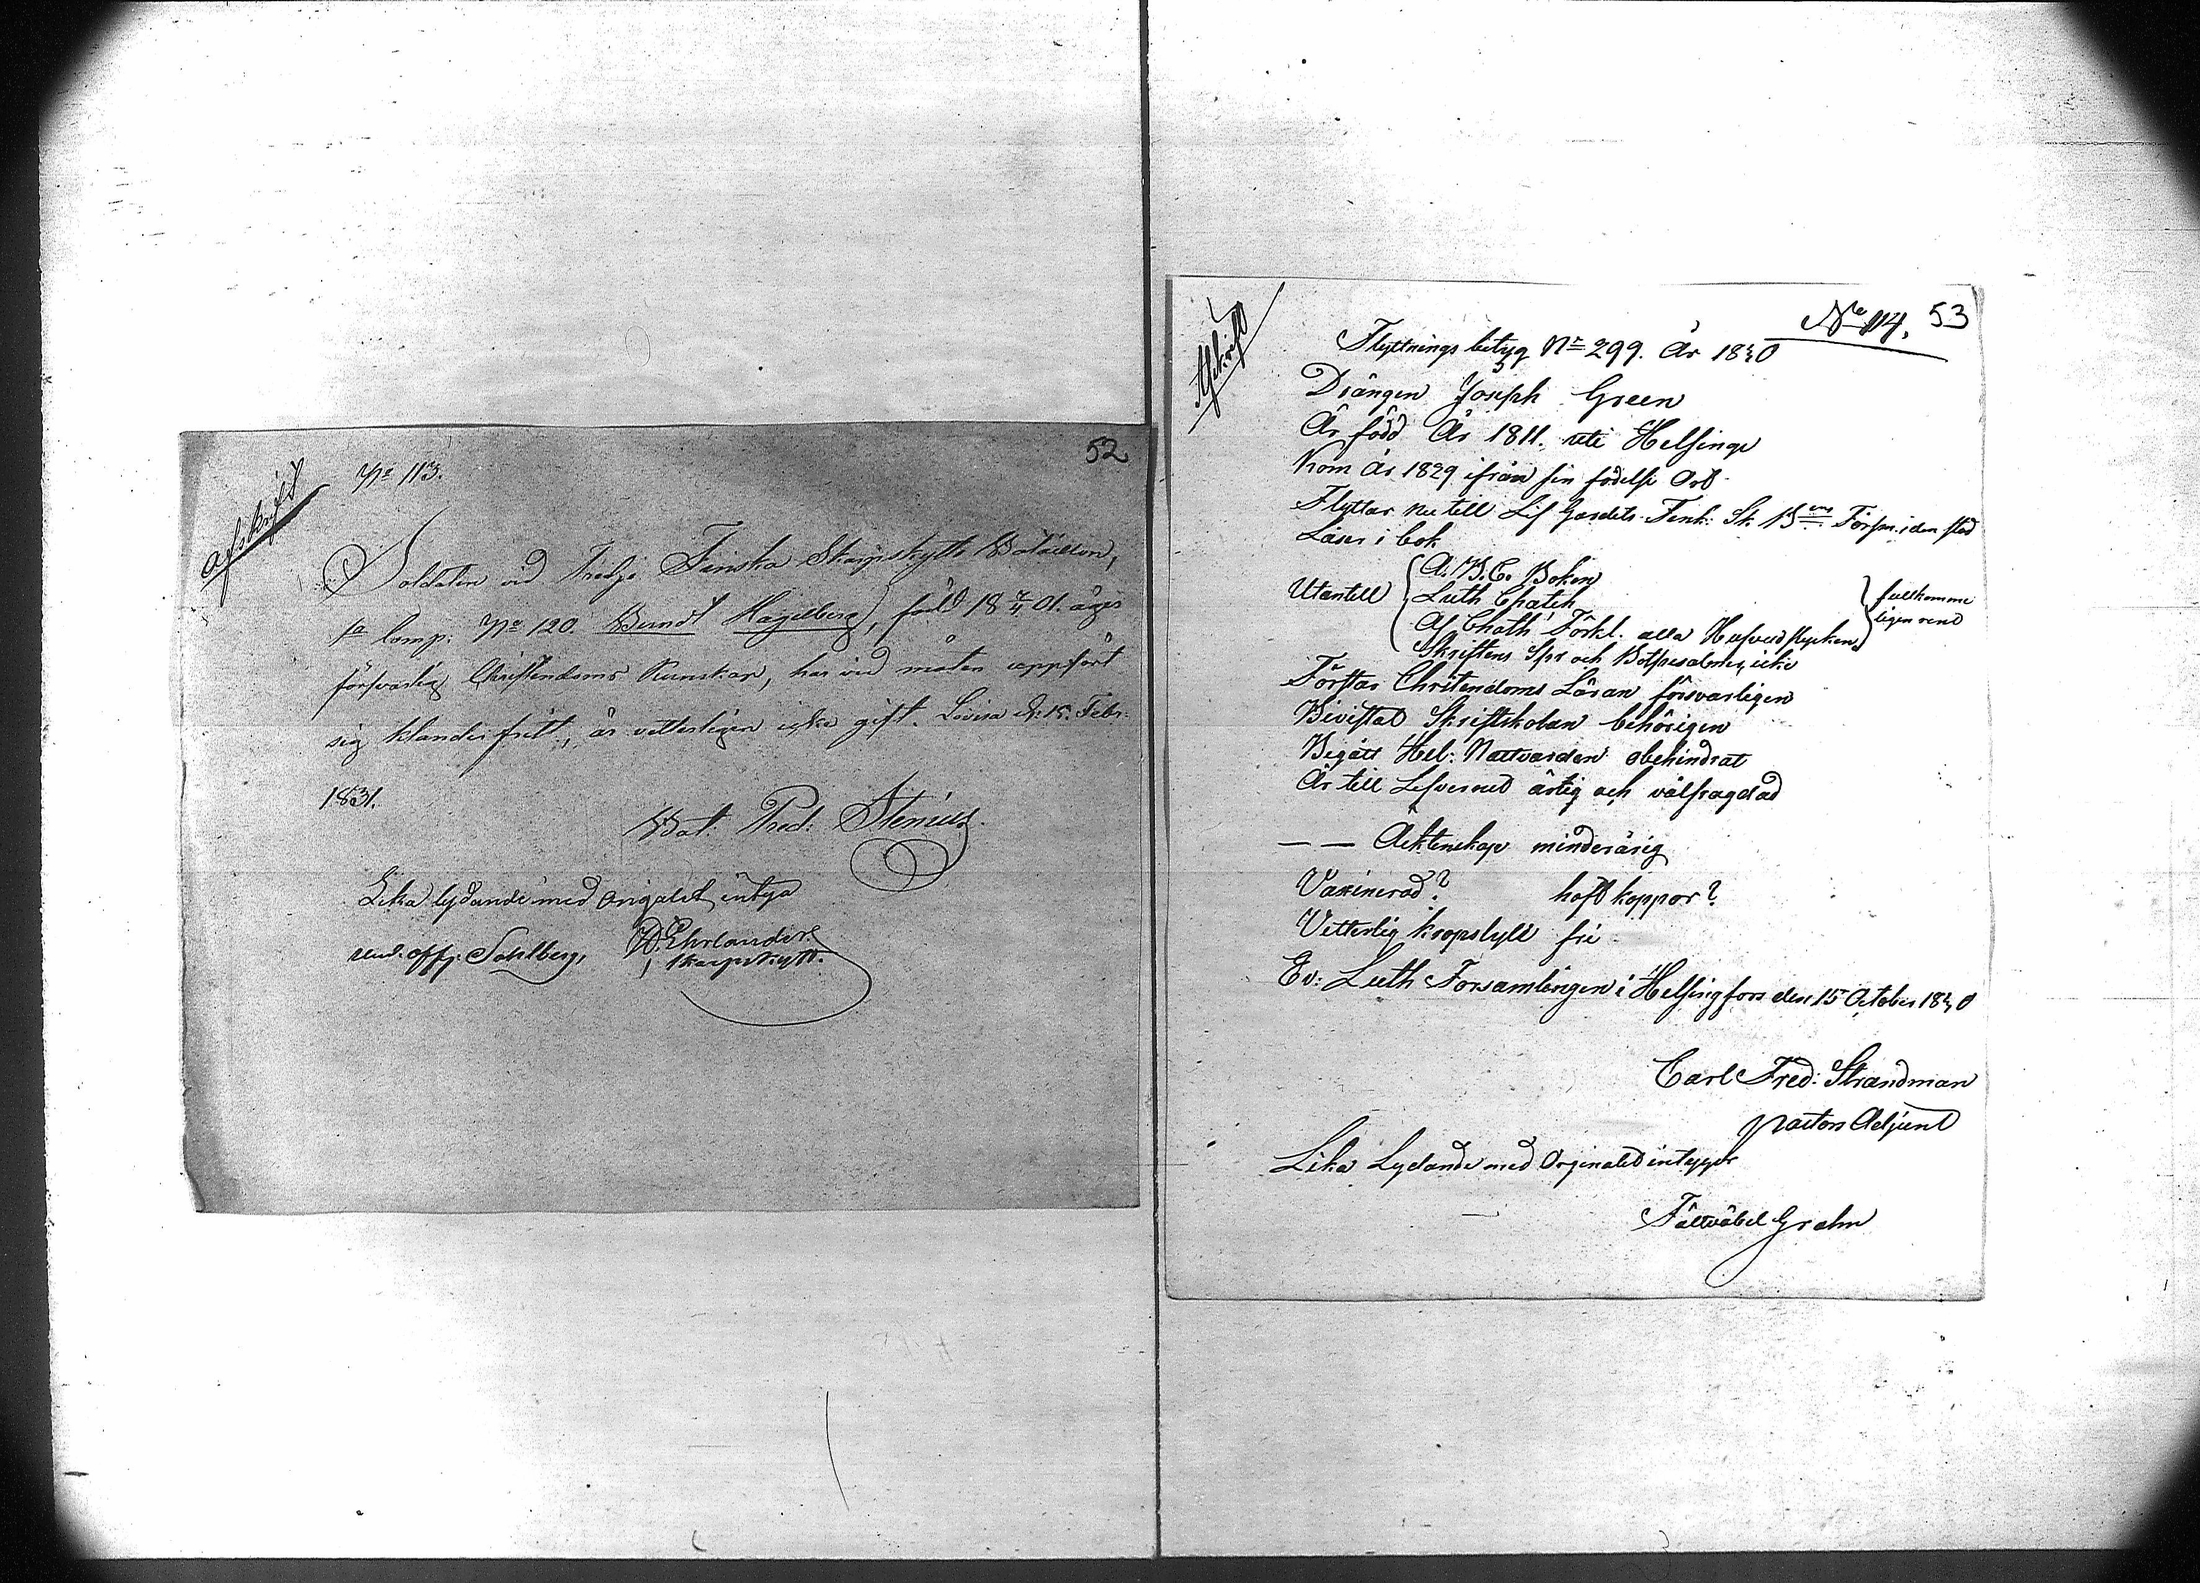 52
Afskrift
No 113.
Soldaten vid Tredje Finska Skarpskytte Bataillon,
1a Comp: No 120. Berndt Hagelberg, född 18 7/4 01. äger
försvarlig Christendoms Kunskap, har vid moten uppfört
sig klanderfritt, är vetterligen icke gift. Lovisa d: 15. Febr:
1831.
Bat: Pred: Stenius.
Lika lydande med origalet intyga
und. off: Sahlberg, Ehrlander
skarpskytt.
No 114. 53
Afskrift
Flyttnings betyg No 299. År 1830
Drängen Joseph Green
Är född År 1811. uti Helsinge
Kom År 1829 ifrån sin födelse Ort
Flyttar nu till Lif Gardets Fink: Sk: Bns Förs. i den stad
Läser i bok
Utantill
A. B. C. Boken
Luth Chatek
Af Chath Förkl. alla Hufvud stycken
Skriftens Spr och Botpsalmer, icke
fullkomme
ligen rent
Förstar Christendoms Läran försvarligen
Bivistat Skriftskolan behörigen
Begått Hel: Nattvarden obehindrat
Är till Lefverned ärtig och välfragdad
— — Äcktenskap minderårig
Vaxinerad? haft koppor?
Vetterlig kropslytt fri
Ev: Luth Forsamlingen i Helsingfors den 15 October 1830
Carl Fred: Strandman
Pastors Adjunt
Lika Lydande med Orginalet intygger
Fältväbel Grahn